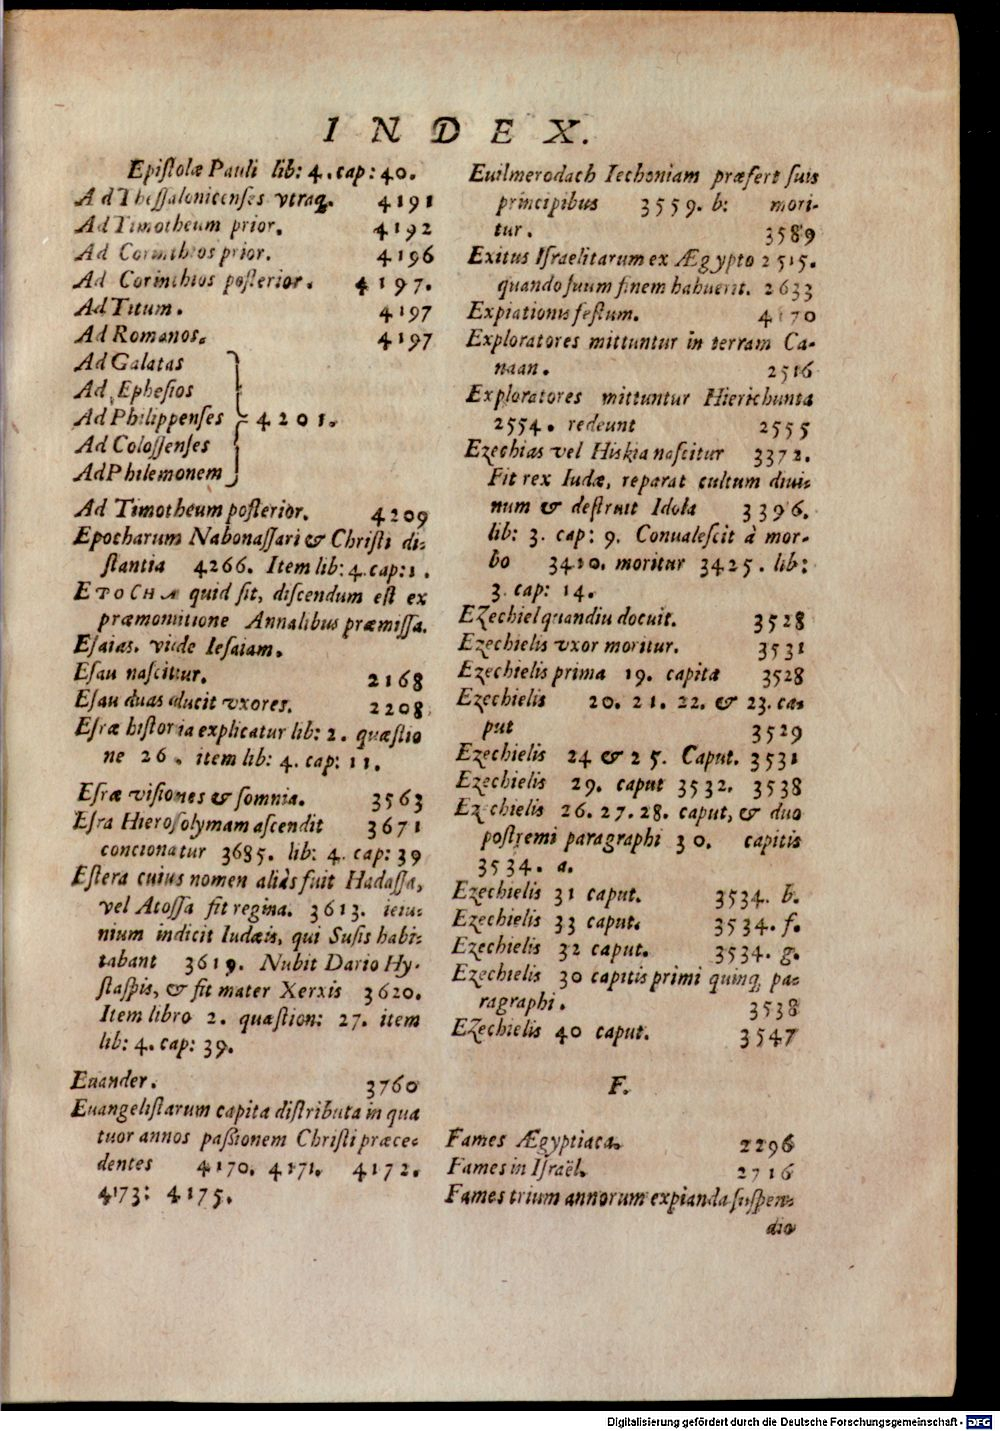 INDEX.
Epiſtolæ Pauli lib: 4. cap: 40.
Ad Theſſalonicenſes vtraq́. 4191
Ad Timotheum prior. 4192
Ad Corinthios prior. 4196
Ad Corinthios poſterior. 4197.
Ad Titum. 4197
Ad Romanos. 4197
Ad Galatas
Ad Epheſios
Ad Philippenſes 4201.
Ad Coloſſenſes
Ad Philemonem
Ad Timotheum poſterior. 4209
Epocharum Nabonaſſari & Chriſti di-
ſtantia 4266. Item lib: 4. cap: 1.
EPOCHA quid ſit, diſcendum eſt ex
præmonitione Annalibus præmiſſa.
Eſaias. vide Ieſaiam.
Eſau naſcitur. 2168
Eſau duas ducit vxores. 2208
Eſræ hiſtoria explicatur lib: 2. quæſtio
ne 26. item lib: 4. cap: 11.
Eſræ viſiones & ſomnia. 3563
Eſra Hieroſolymam aſcendit 3671
concionatur 3685. lib: 4. cap: 39
Eſtera cuius nomen aliàs fuit Hadaſſa,
vel Atoſſa fit regina. 3613. ieiu-
nium indicit Iudæis, qui Suſis habi-
tabant 3619. Nubit Dario Hy-
ſtaſpis, & fit mater Xerxis 3620.
Item libro 2. quæſtion: 27. item
lib: 4. cap: 39.
Euander. 3760
Euangeliſtarum capita diſtributa in qua
tuor annos paſsionem Chriſti præce-
dentes 4170. 4171. 4172.
4173: 4175.
Euilmerodach Iechoniam præfert ſuis
principibus 3559. b: mori-
tur. 3589
Exitus Iſraelitarum ex Ægypto 2515.
quando ſuum finem habuerit. 2633
Expiationis feſtum. 4170
Exploratores mittuntur in terram Ca-
naan. 2516
Exploratores mittuntur Hierichunta
2554. redeunt 2555
Ezechias vel Hiskia naſcitur 3372.
Fit rex Iudæ, reparat cultum diui-
num & deſtruit Idola 3396.
lib: 3. cap: 9. Conualeſcit à mor-
bo 3410. moritur 3425. lib:
3. cap: 14.
Ezechiel quandiu docuit. 3528
Ezechielis vxor moritur. 3531
Ezechielis prima 19. capita 3528
Ezechielis 20. 21. 22. & 23. ca-
put 3529
Ezechielis 24 & 25. Caput. 3531
Ezechielis 29. caput 3532. 3538
Ezechielis 26. 27. 28. caput, & duo
poſtremi paragraphi 30. capitis
3534. a.
Ezechielis 31 caput. 3534. b.
Ezechielis 33 caput. 3534. f.
Ezechielis 32 caput. 3534. g.
Ezechielis 30 capitis primi quinq́ pa-
ragraphi. 3538
Ezechielis 40 caput. 3547
F.
Fames Ægyptiaca. 2296
Fames in Iſraël. 2716
Fames trium annorum expianda ſuſpen-
dio
Digitalisierung gefördert durch die Deutsche Forschungsgemeinschaft - DFG